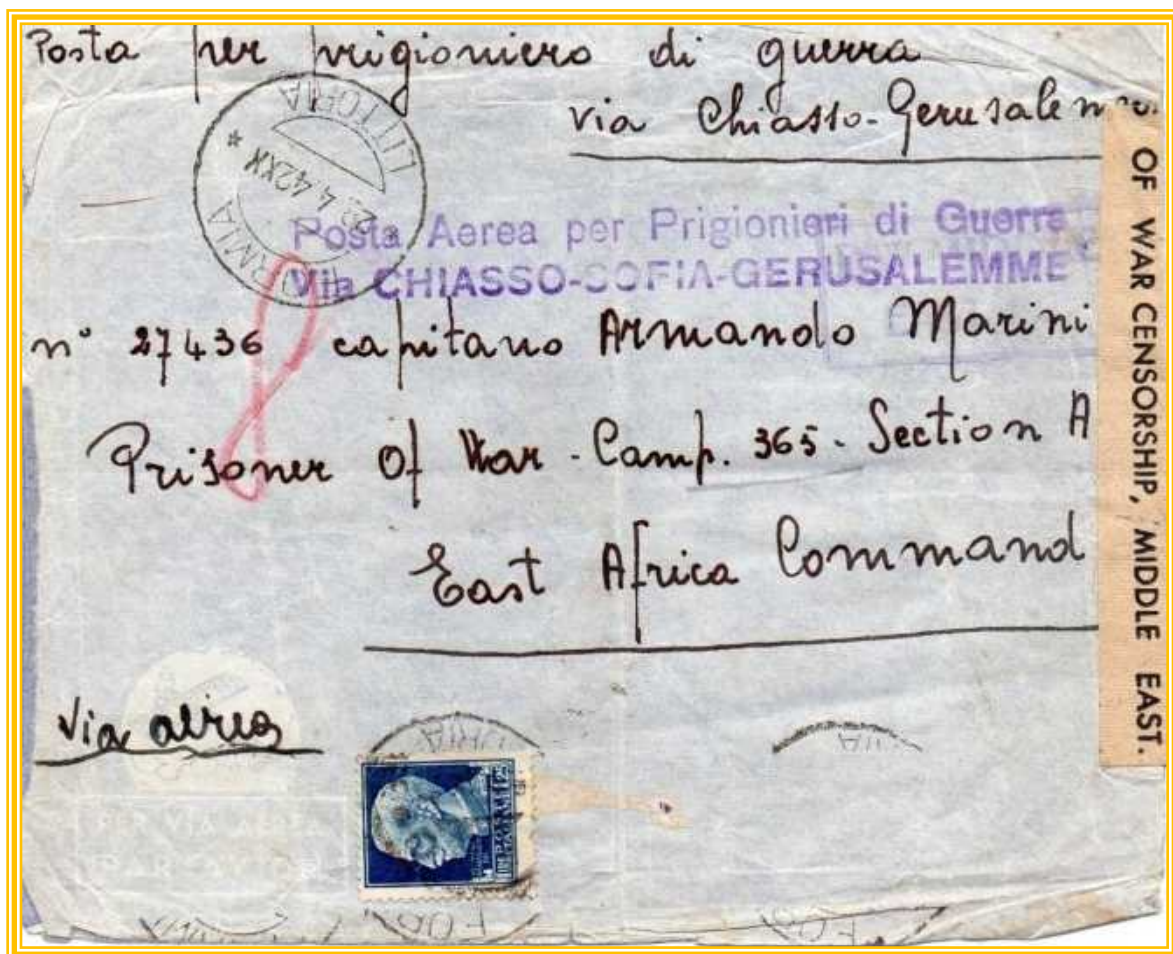 Posta per prigioniero di guerra
via Chiasso-Gerusalemme
LITTORIA
4.42XX
RMIA
Posta Aerea per Prigionieri di Guerra
Via CHIASSO-SOFIA-GERUSALEMME
n° 27436 capitano Armando Marini
Prisoner Of War - Camp. 365 - Section A
East Africa Command
OF WAR CENSORSHIP, MIDDLE EAST.
Via aerea
PER VIA AEREA
PAR AVION